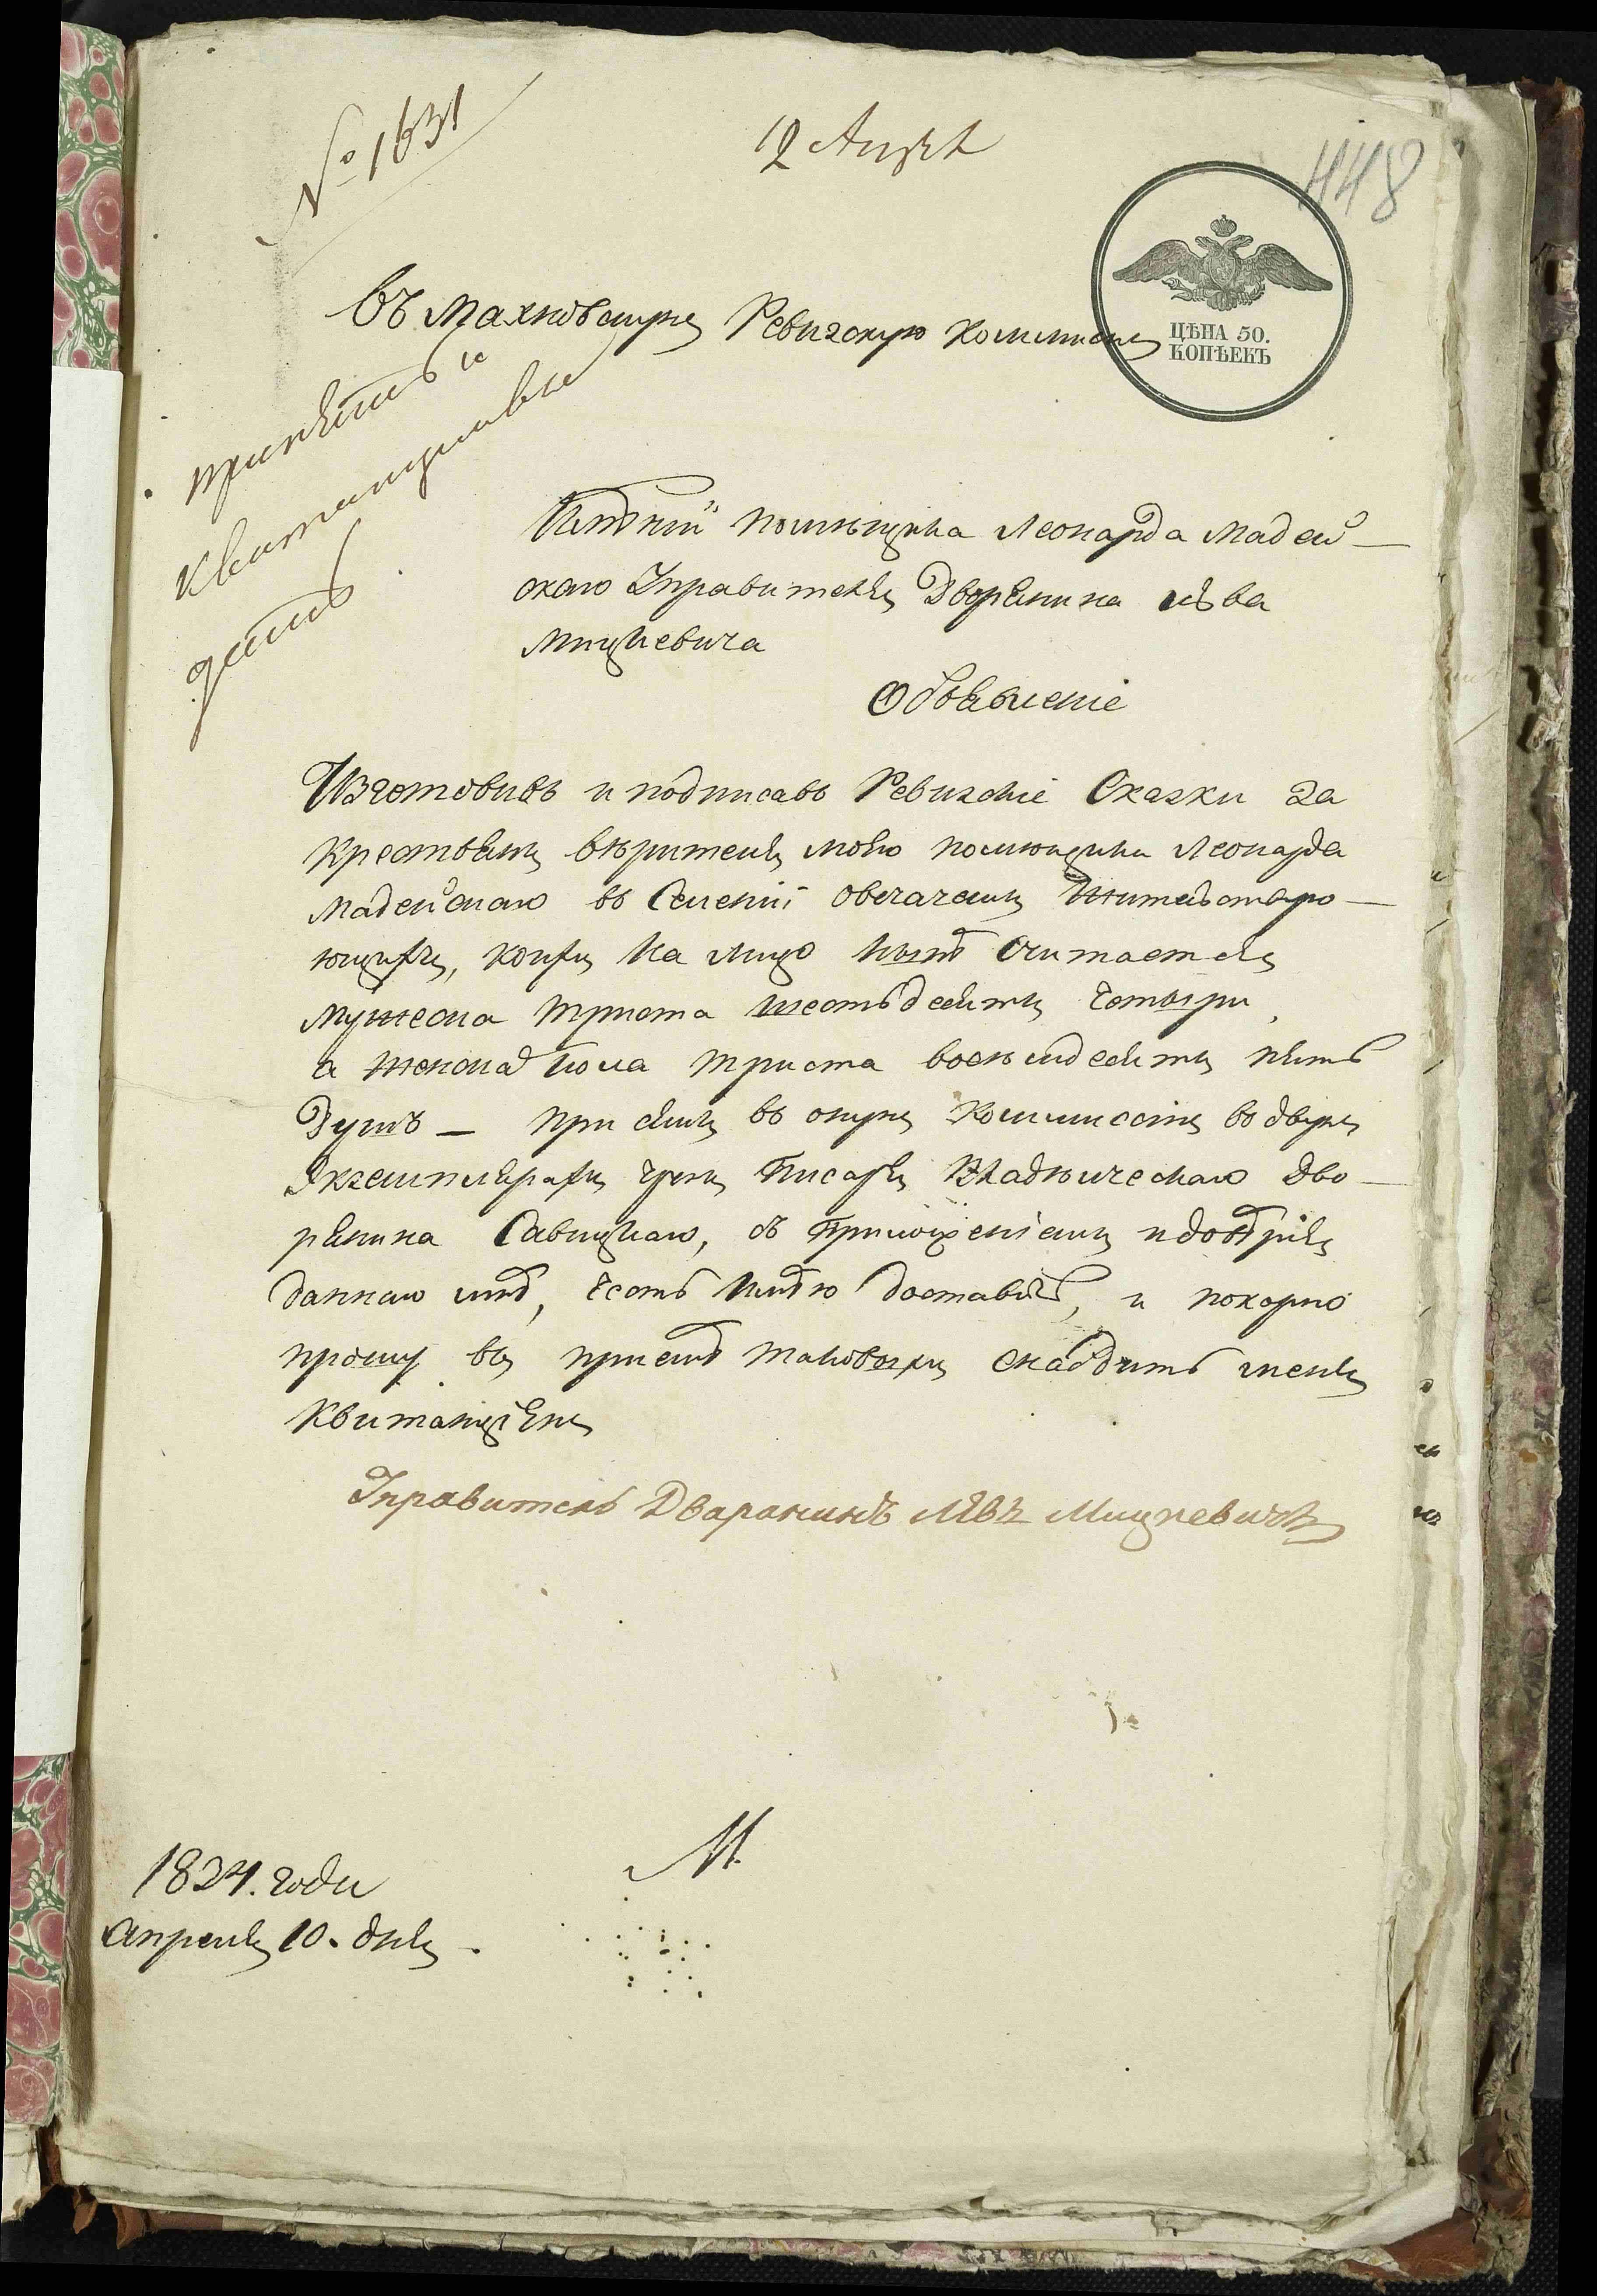 № 1631
12 Апрѣл
448
ЦѢНА 50.
КОПѢЕКЪ
Въ Махновскую Ревизскую Коммисію
принять и
квитанцию
дать
Имѣній помѣщика Леонарда Мадей-
скаго Управителя Дворянина Лѣва
Мицкевича
Объявленіе
Изготовивъ и подписавъ Ревизскіе Сказки за
Крестьянъ вѣрителя моего помѣщика Леонарда
Мадейскаго въ Селеніи Овечачемъ Жительство-
ющихъ, коихъ на лицо нынѣ Считается
мужеска триста шестьдесятъ Четыри,
а женска пола триста восемьдесятъ пять
Душъ — при семъ въ оную Коммиссію въ двухъ
Экземплярахъ чрезъ Писаря Владѣльческаго Дво-
рянина Савицкаго, съ приложеніемъ и довѣрія
даннаго мнѣ, честь имѣю доставить, и покорно
прошу въ пріемѣ таковыхъ снабдить меня
Квитанціею
Управитель Дваранинъ Лѣвъ Мицкевичъ
М.
1834. года
Апреля 10. дня